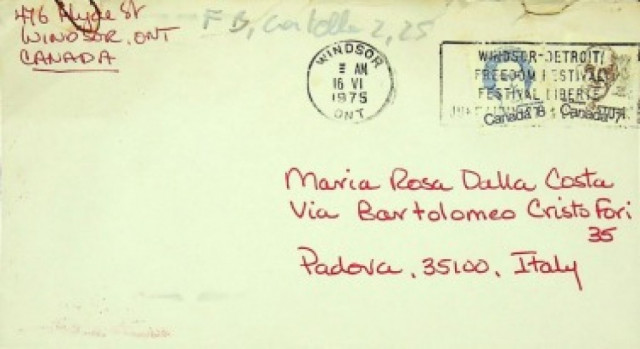 476 Hyde St
WINDSOR, ONT
CANADA
F B, Cartella 2, 25
WINDSOR
AM
16 VI
1975
ONT
WINDSOR-DETROIT/
FREEDOM FESTIVAL
FESTIVAL LIBERTE
Canada 8
Canada
Maria Rosa Dalla Costa
Via Bartolomeo CristoFori
35
Padova, 35100, Italy